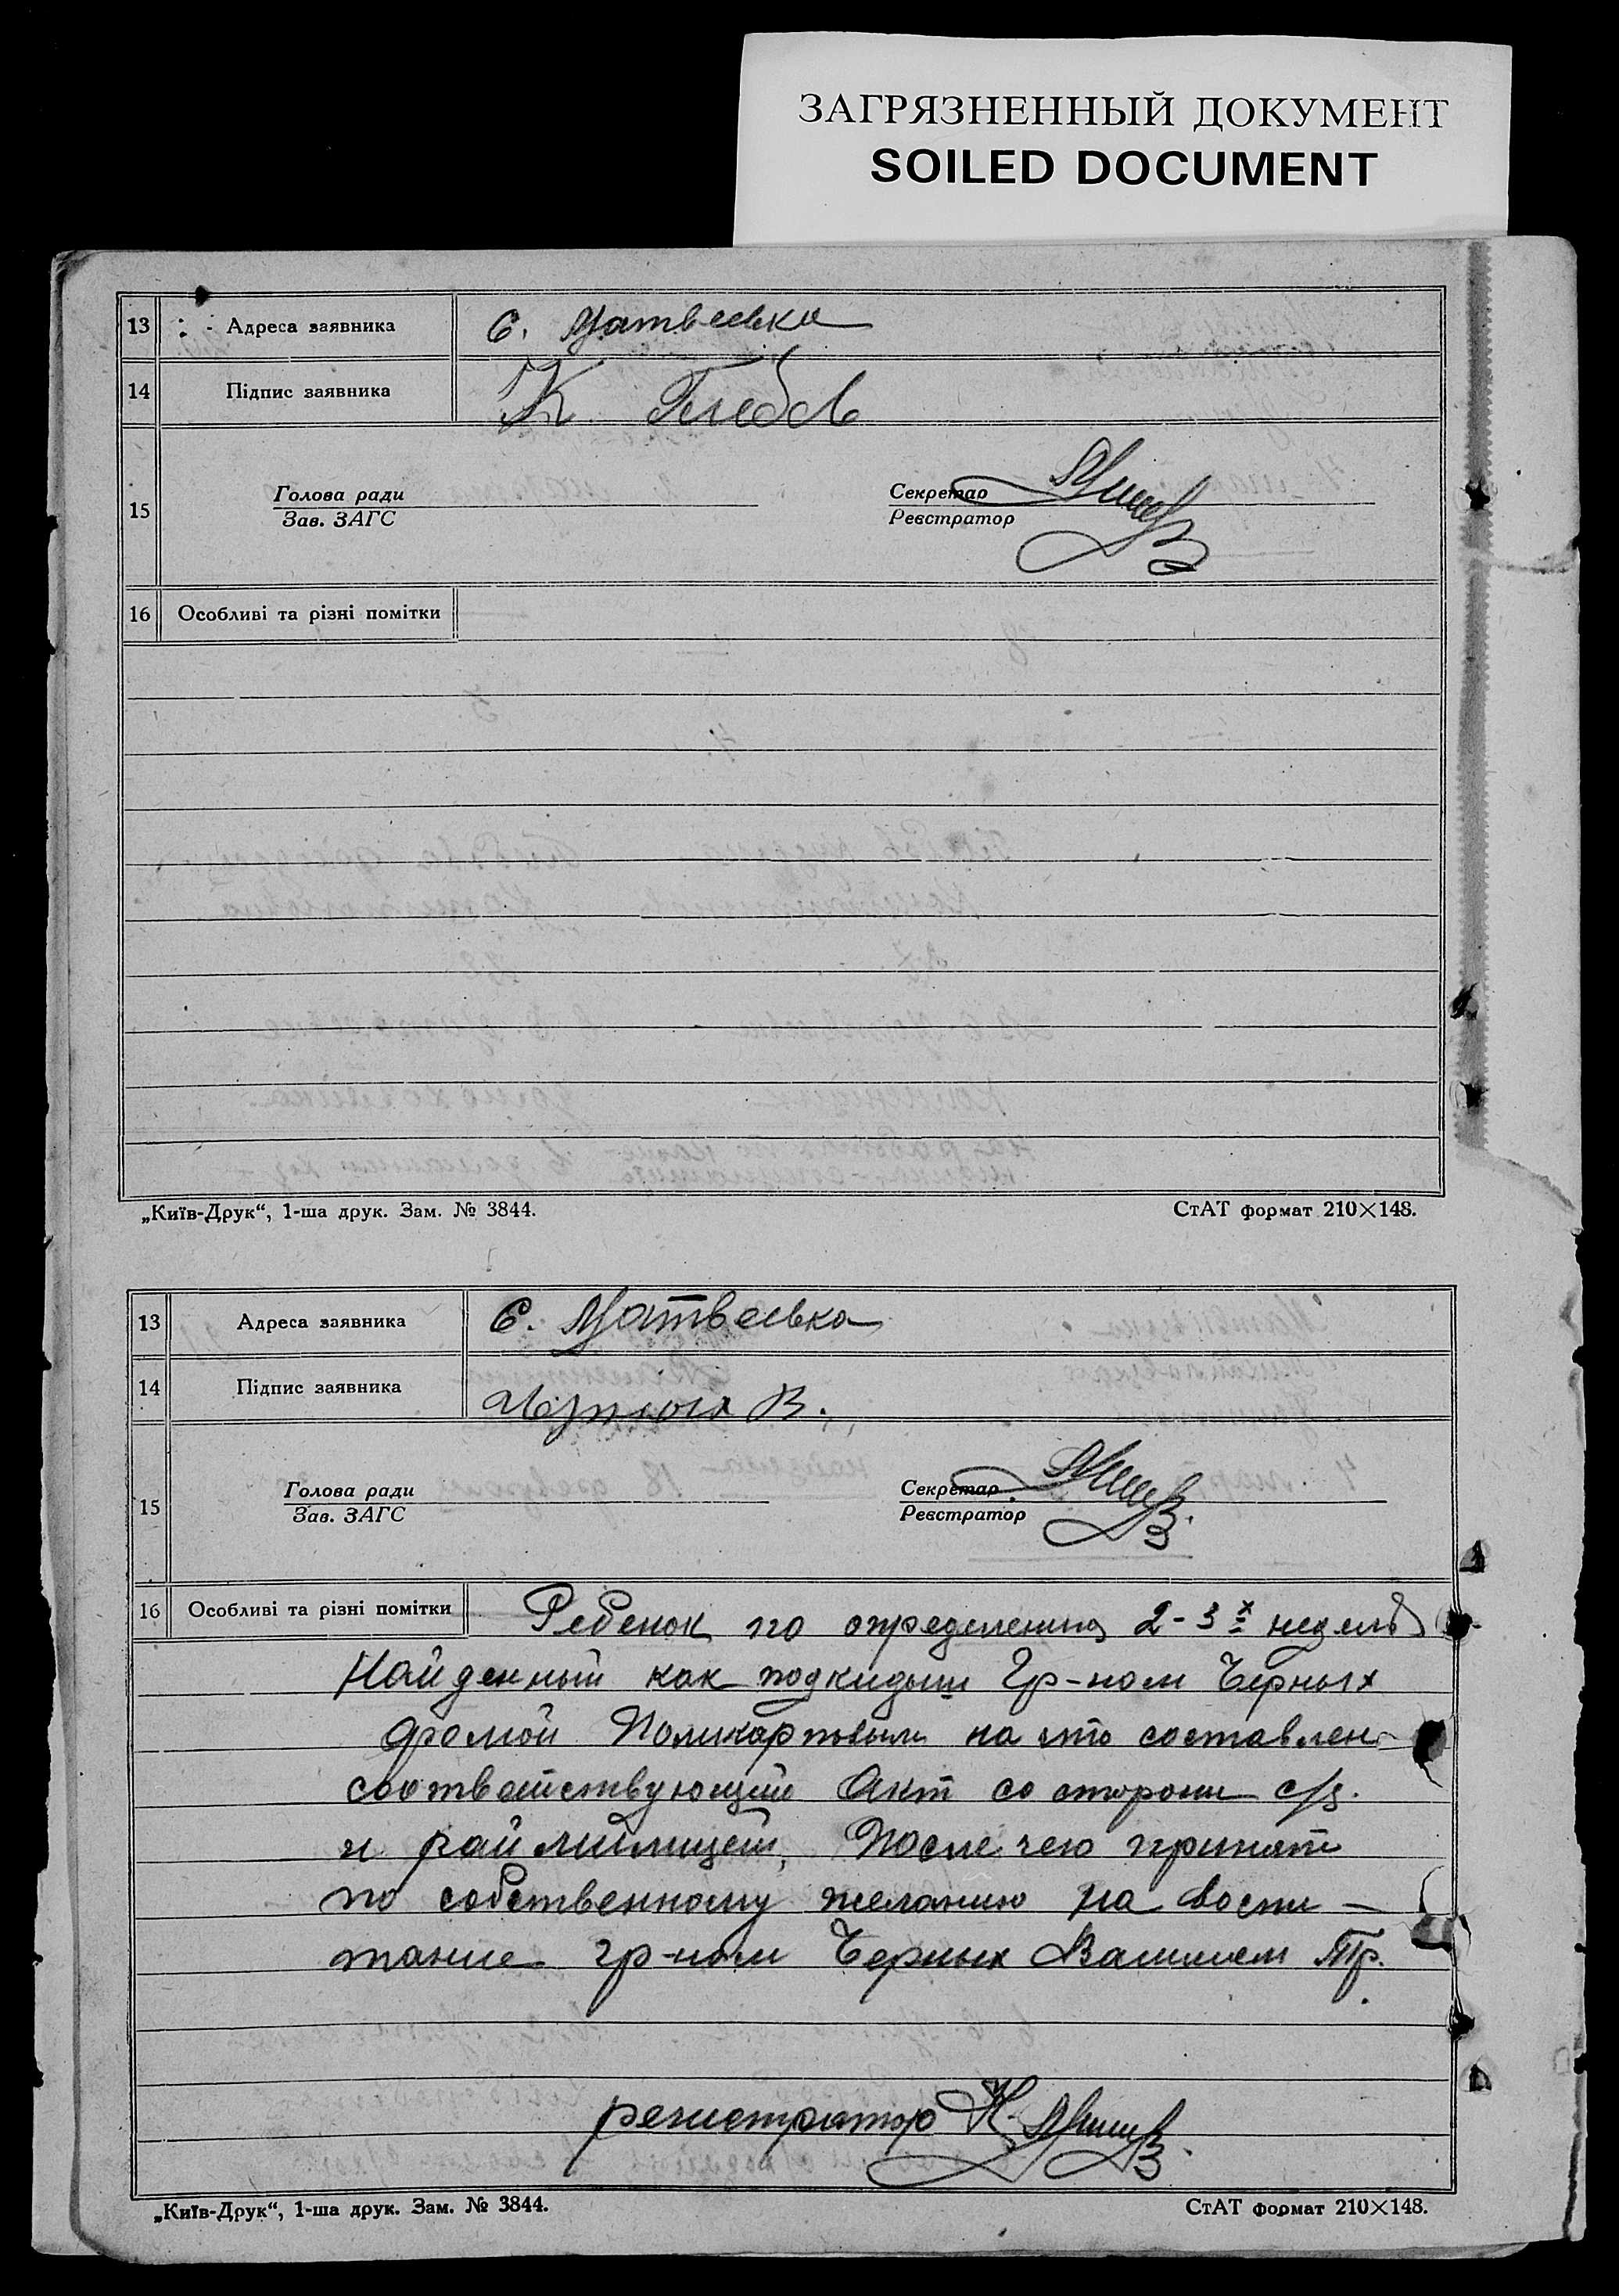 ЗАГРЯЗНЕННЫЙ ДОКУМЕНТ
SOILED DOCUMENT
13 Адреса заявника с. Матвеевка
14 Підпис заявника К Глебов
15 Голова ради Секретар
Зав. ЗАГС Реєстратор
16 Особливі та різні помітки
„Київ-Друк“, 1-ша друк. Зам. № 3844. СтАТ формат 210×148.
13 Адреса заявника с. Матвеевка
14 Підпис заявника В.
15 Голова ради Секретар
Зав. ЗАГС Реєстратор
16 Особливі та різні помітки Ребенок по определению 2-3х недель
Найденный как подкидыш Гр-ном Черных
Фомой Поликарповым на что составлен
соответствующий Акт со сторони с/р.
и рай милицей, После чего принят
по собственному желанию на воспи-
тание гр-ном Черных Василием Тр.
регистратор Н.
„Київ-Друк“, 1-ша друк. Зам. № 3844. СтАТ формат 210×148.